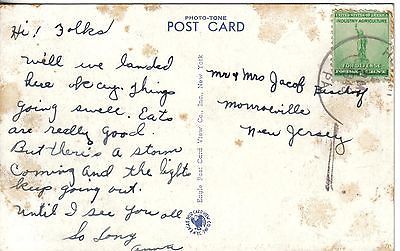 PHOTO-TONE
POST CARD
Hi! Folks
Well we landed
here okay. Things
going swell. Eats
are really good
But there's a storm
Coming and the lights
keep going out.
Until I see you all
So long
Anna
Eagle Post Card View Co., Inc., New York
UNITED STATES OF AMERICA
INDUSTRY AGRICULTURE
FOR DEFENSE
PA.
Mr & Mrs Jacob
Monroeville
New Jersey